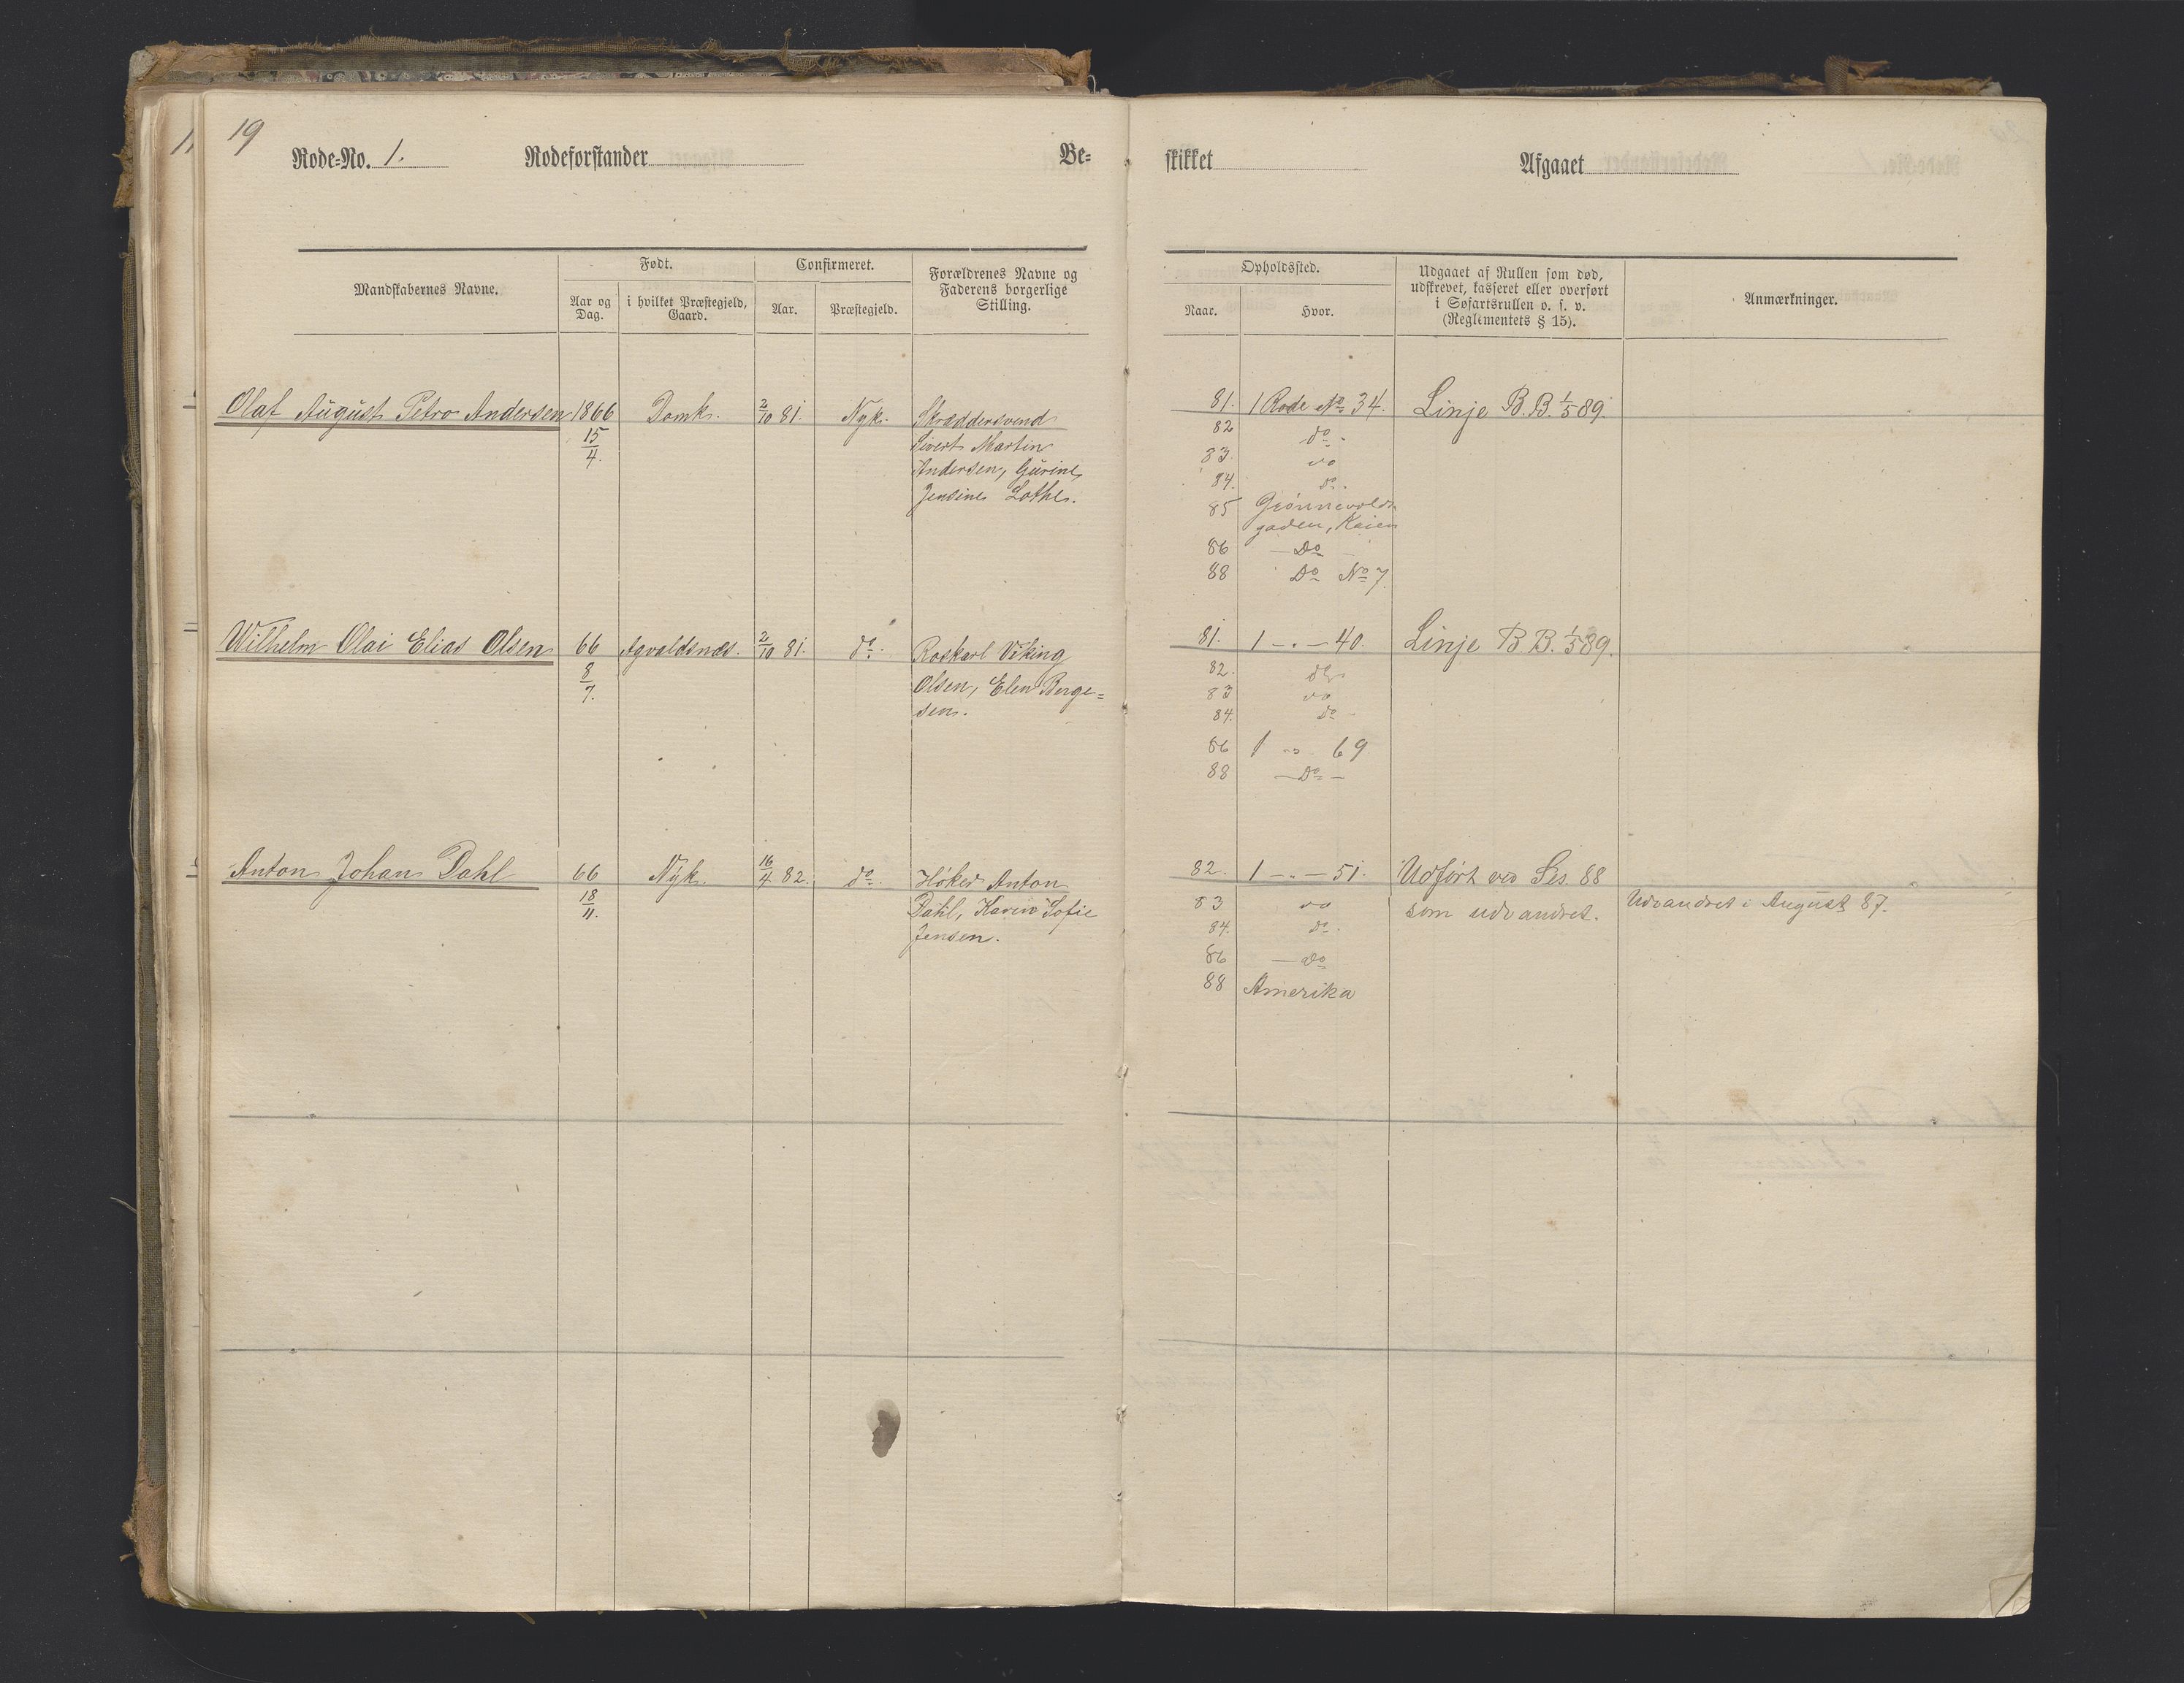 19
Rode-No. 1. Rodeforstander Be-
skikket Afgaaet
Mandskabernes Navne.
Født.
Aar og Dag.
i hvilket Præstegjeld, Gaard.
Confirmeret.
Aar.
Præstegjeld.
Forældrenes Navne og
Faderens borgerlige
Stilling.
Opholdssted.
Naar.
Hvor.
Udgaaet af Rullen som død,
udskrevet, kasseret eller overført
i Søfartsrullen o. s. v.
(Reglementets § 15).
Anmærkninger.
Olaf August Petro Andersen 1866 Domk. 2/10 81. Nyk. Skræddersvend
15/4. Sivert Martin
Andersen, Gurine
Jensine Lothe.
81. 1 Rode No 34. Linje B.B. 1/5 89.
82 do
83. do
84. do
85 Grønnevolds-
gaden, Keien
86 - Do -
88 Do No 7.
Wilhelm Olai Elias Olsen 66 Agvaldsnæs. 2/10 81. do. Roskarl Viking
8/7. Olsen, Elen Berge=
sen.
81. 1 - " - 40. Linje B.B. 1/5 89.
82. do
83 do
84. do
86 1 " 69
88 - Do -
Anton Johan Dahl 66 Nyk. 16/4 82. do. Høker Anton
18/11. Dahl, Karen Sofie
Jensen.
82. 1 - " - 51. Udført ved Ses. 88
83 do som udvandret. Udvandret i August 87.
84. do
86 - do
88 Amerika